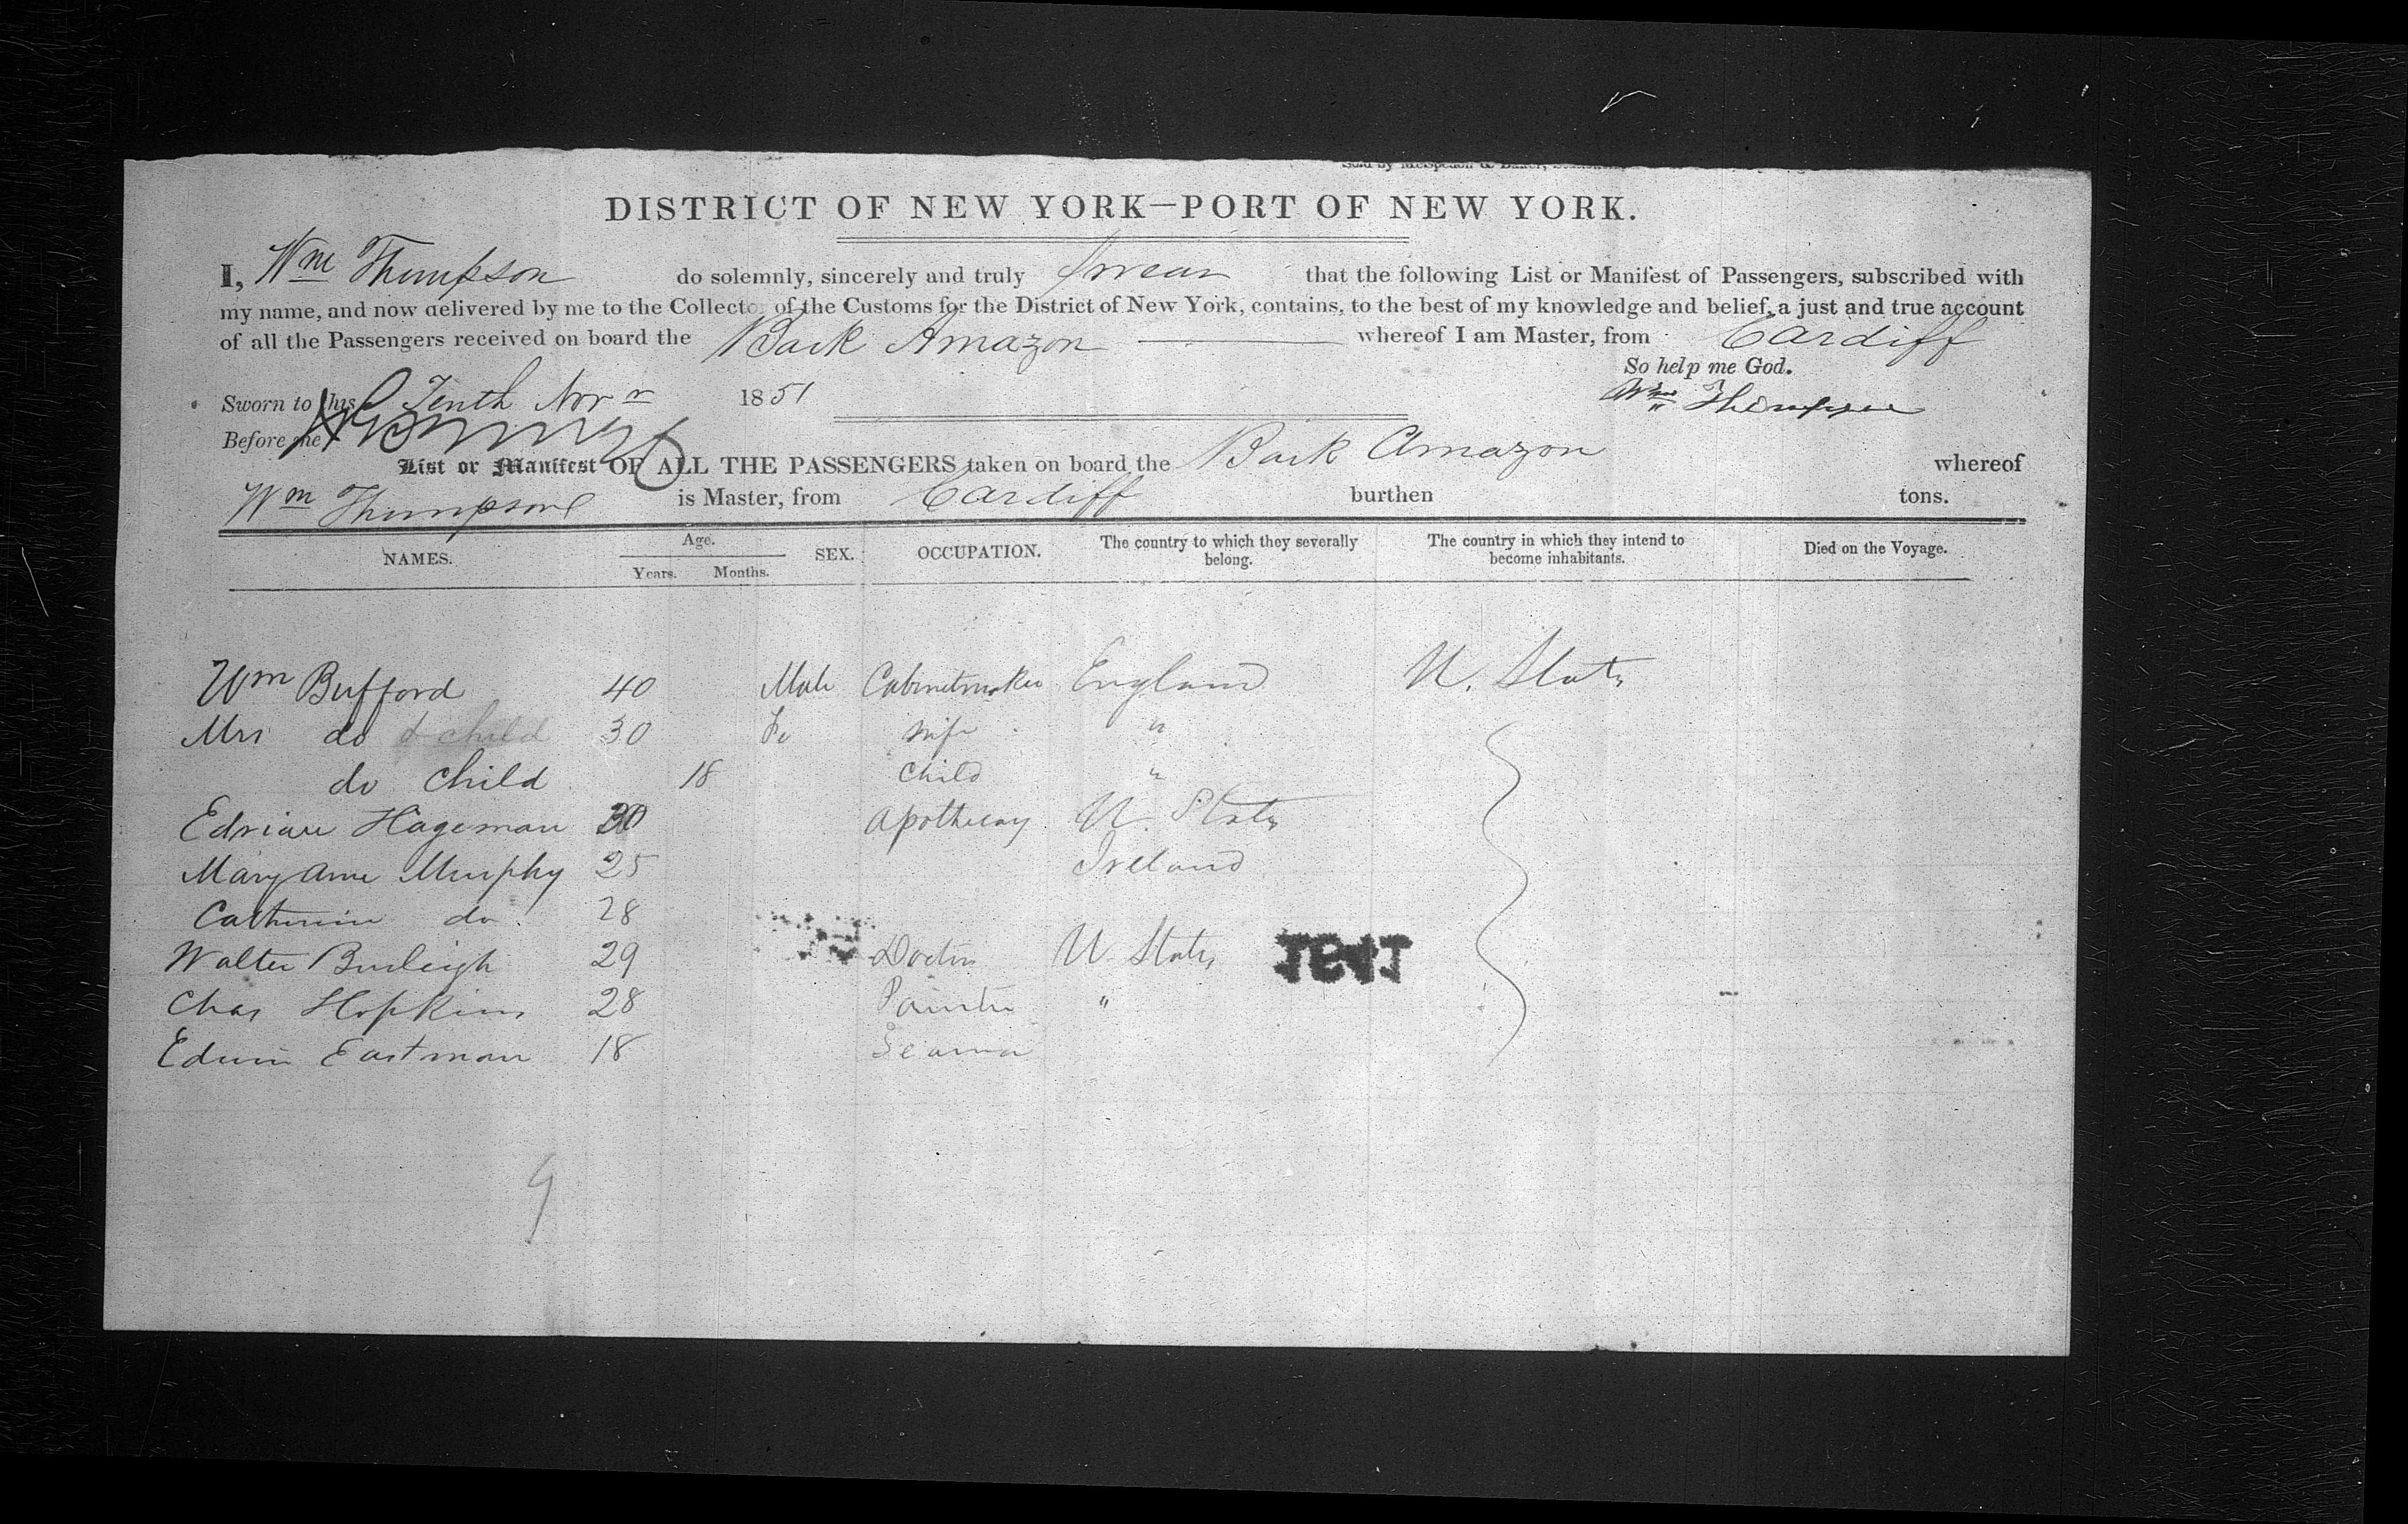 DISTRICT OF NEW YORK—PORT OF NEW YORK.
I, Wm Thompson do solemnly, sincerely and truly swear that the following List or Manifest of Passengers, subscribed with
my name, and now delivered by me to the Collector of the Customs for the District of New York, contains, to the best of my knowledge and belief, a just and true account
of all the Passengers received on board the Bark Amazon whereof I am Master, from Cardiff
So help me God.
Sworn to this Tenth Novr 1851 Wm Thompson
Before me
List or Manifest OF ALL THE PASSENGERS taken on board the Bark Amazon whereof
Wm Thompson is Master, from Cardiff burthen tons.
NAMES. Age. Years. Months. SEX. OCCUPATION. The country to which they severally belong. The country in which they intend to become inhabitants. Died on the Voyage.
Wm Bufford 40 Male Cabinetmaker England U. States
Mrs do & child 30 Fe wife "
do child 18 Child "
Edrian Hageman 30 Apothecary U. States
Mary Ann Murphy 25 Ireland
Catherine do 28
Walter Burleigh 29 Doctor U. States
Chas Hopkins 28 Painter "
Edwin Eastman 18 Seaman
9